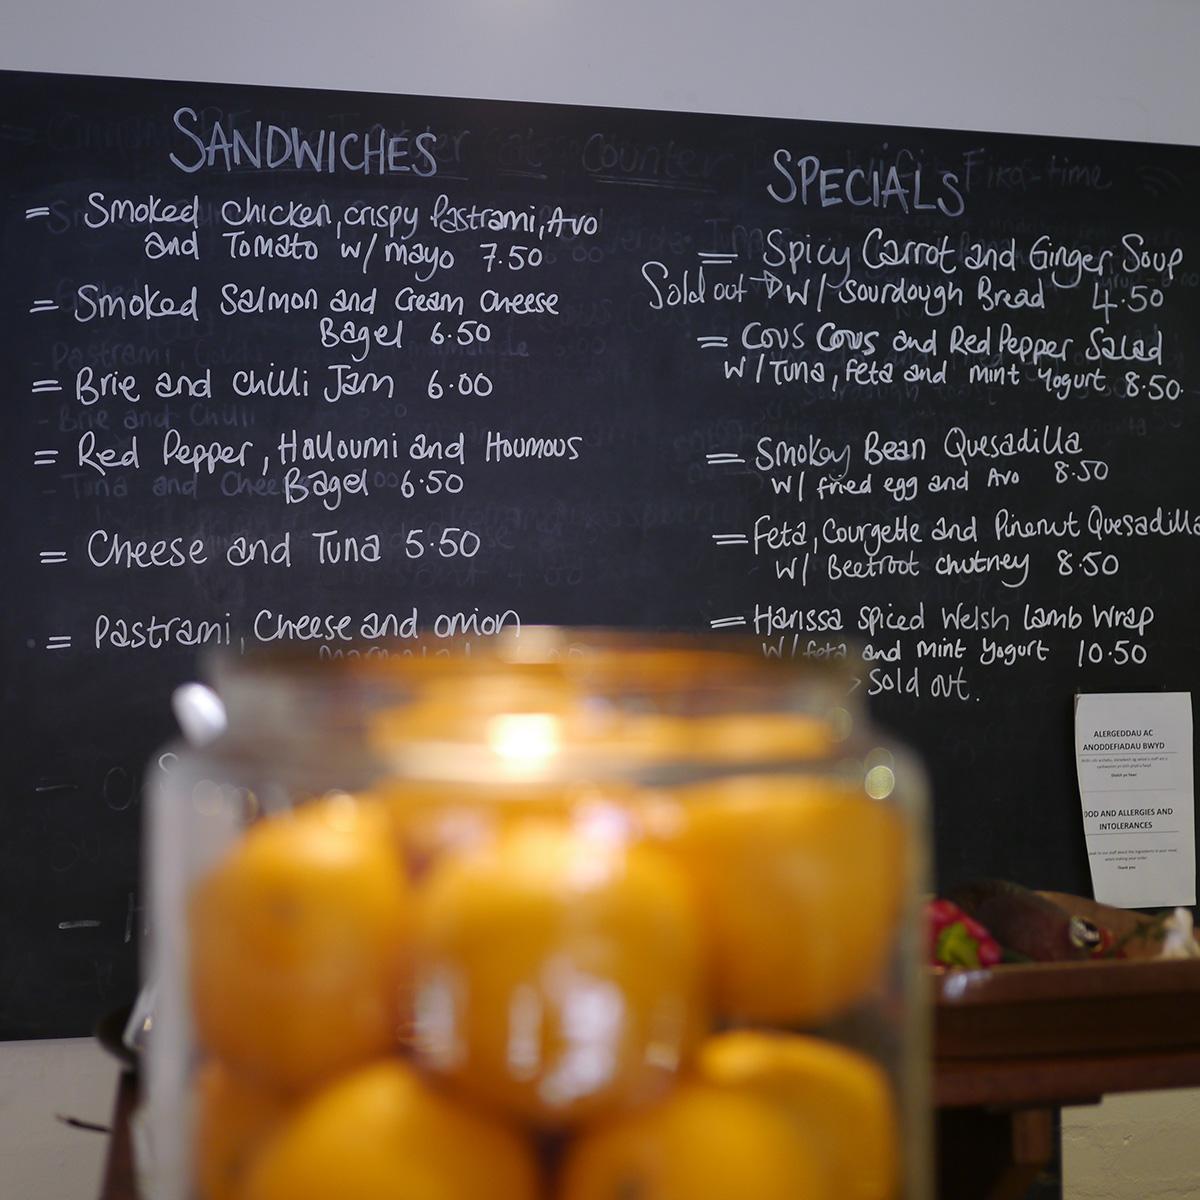 SANDWICHES
= Smoked Chicken, crispy Pastrami, Avo
and Tomato w/ mayo 7.50
= Smoked Salmon and Cream Cheese
Bagel 6.50
= Brie and Chilli Jam 6.00
= Red Pepper, Halloumi and Houmous
Bagel 6.50
= Cheese and Tuna 5.50
= Pastrami, Cheese and onion
SPECIALS
= Spicy Carrot and Ginger Soup
Sold out → w/ Sourdough Bread 4.50
= Cous Cous and Red Pepper Salad
w/ Tuna, feta and mint Yogurt 8.50.
= Smokey Bean Quesadilla
w/ fried egg and Avo 8.50
= Feta, Courgette and Pinenut Quesadilla
w/ Beetroot chutney 8.50
= Harissa spiced Welsh Lamb Wrap
w/ feta and mint Yogurt 10.50
> Sold out.
ALERGEDDAU AC
ANODDEFIADAU BWYD
OOD AND ALLERGIES AND
INTOLERANCES
Thank you